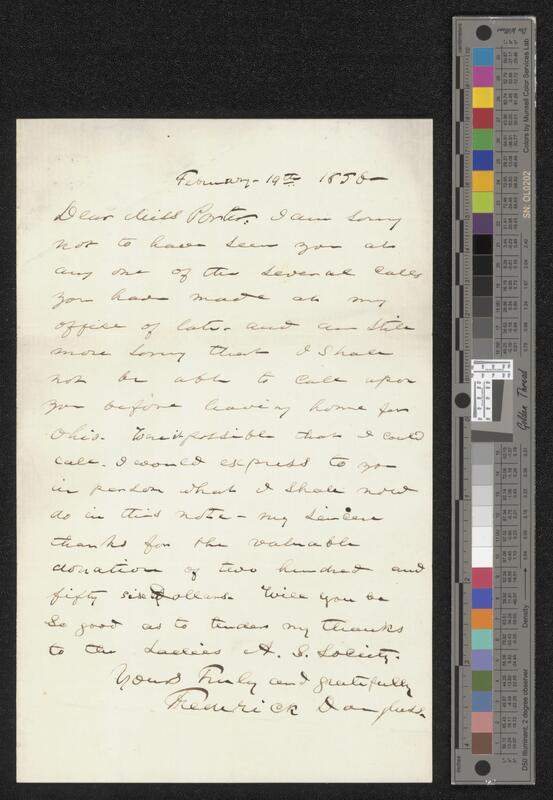 February 19th 1858
Dear Miss Porter, I am sorry
not to have seen you at
any one of the several calls
you have made at my
office of late. and am still
more sorry that I shall
not be able to call upon
you before leaving home for
Ohio. Was it possible that I could
call. I would express to you
in person what I shall now
do in this note - my sincere
thanks for the valuable
donation of two hundred and
fifty six Dollars. Will you be
so good as to tender my thanks
to the Ladies A. S. Society.
Yours Truly and gratefully
Frederick Douglass.
Colors by Munsell Color Services Lab
SN: OL0202
Golden Thread
Density
D50 Illuminant, 2 degree observer
centimeters
inches